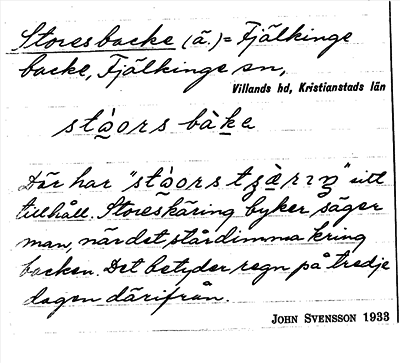 Storesbacke (ä.) = Fjälkinge
backe, Fjälkinge sn,
Villands hd, Kristianstads län
stà̱ors bàḵa
Där har "stà̱ors tʒæ̀rıŋ" sitt
tillhåll. Storeskäring byker säger
man, när det står dimma kring
backen. Det betyder regn på tredje
dagen därifrån.
JOHN SVENSSON 1933